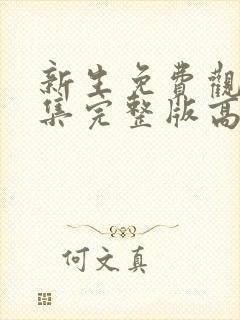 新生免費觀
集完整版高
何文真